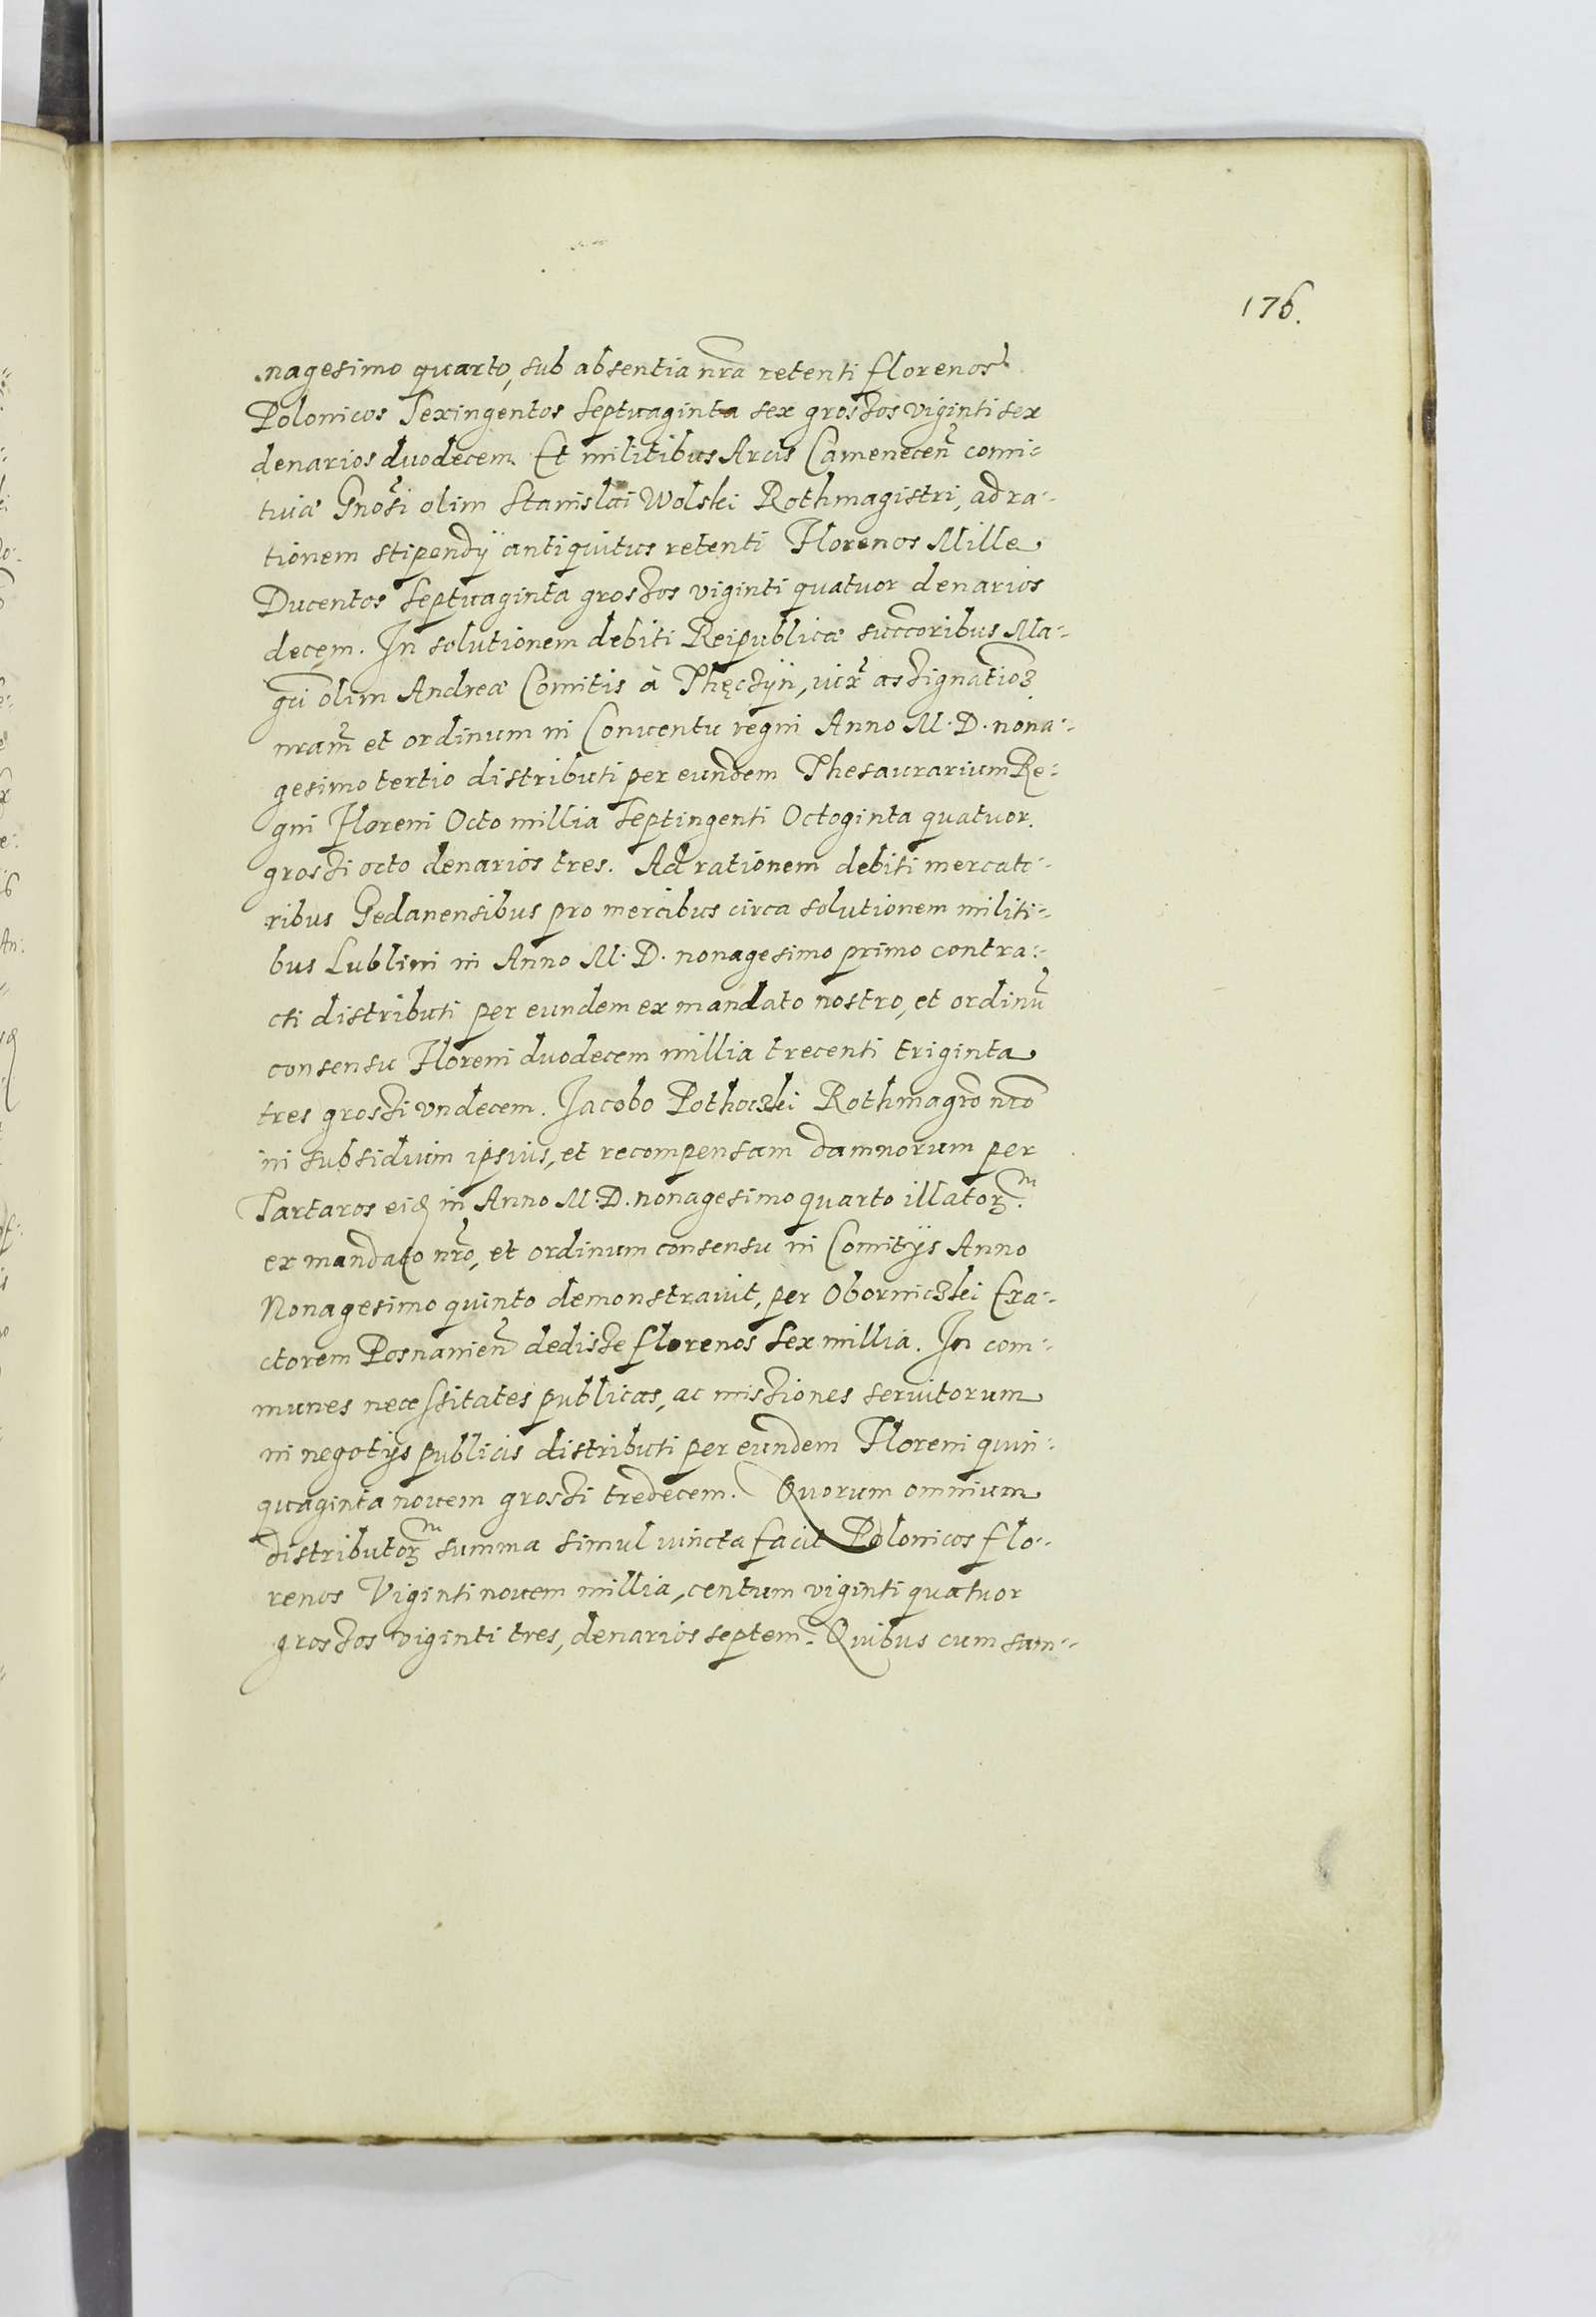 176.
nagesimo quarto, sub absentia nrã retenti florenos
Polonicos Sexingentos septuaginta sex grossos viginti sex
denarios duodecem. Et militibus Arcis Camenecen̄ comi-
tiuæ Gnosi olim Stanislai Wolski Rothmagistri, ad ra-
tionem stipendÿ antiquitus retenti Florenos Mille
Ducentos septuaginta grossos viginti quatuor denarios
decem. In solutionem debiti Reipublicæ succoribus Ma-
gci olim Andreæ Comitis à Thęczÿn, iux̄ assignatioē
nram̄ et ordinum in Conuentu regni Anno M. D. nona-
gesimo tertio distributi per eundem Thesaurarium Re-
gni Floreni Octo millia septingenti Octoginta quatuor.
grossi octo denarios tres. Ad rationem debiti mercato-
ribus Gedanensibus pro mercibus circa solutionem militi-
bus Lublini in Anno M. D. nonagesimo primo contra-
cti distributi per eundem ex mandato nostro, et ordinū
consensu Floreni duodecem millia trecenti triginta
tres grossi vndecem. Jacobo Pothoczki Rothmagrō nrō
in subsidium ipsius, et recompensam damnorum per
Tartaros eiḋ in Anno M. D. nonagesimo quarto illatorꝫm.
ex mandato nrō, et ordinum consensu in Comitÿs Anno
Nonagesimo quinto demonstrauit, per Oborniczki Exa-
ctorem Posnanien̄ dedisse florenos sex millia. In com-
munes necessitates publicas, ac missiones seruitorum
in negotÿs publicis distributi per eundem Floreni quin-
quaginta nouem grossi tredecem. Quorum omnium
distributorꝫm summa simul iuncta facit Polonicos flo-
renos Viginti nouem millia, centum viginti quatuor
grossos viginti tres, denarios septem. Quibus cum sum-